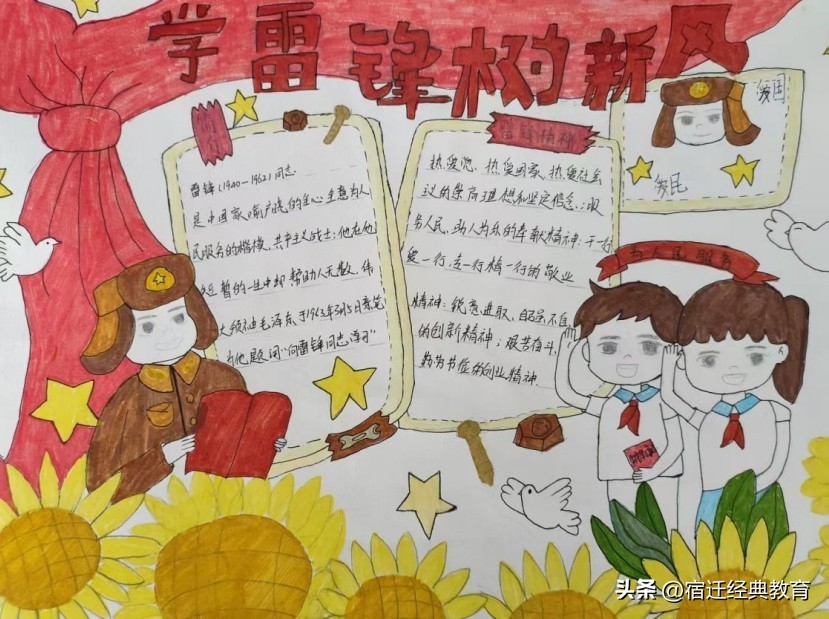 学雷锋树新风
简介
雷锋(1940-1962)同志
是中国家喻户晓的全心全意为人
民服务的楷模、共产主义战士;他在他
短暂的一生中却帮助人无数,伟
大领袖毛泽东于1963年3月5日亲笔
为他题词“向雷锋同志学习”
雷锋精神
热爱党、热爱国家、热爱社会
主义的崇高理想和坚定信念;服
务人民、助人为乐的奉献精神;干一行
爱一行、专一行精一行的敬业
精神;锐意进取、自强不息
的创新精神;艰苦奋斗,
勤俭节约的创业精神.
爱国
爱民
为人民服务
头条@宿迁经典教育